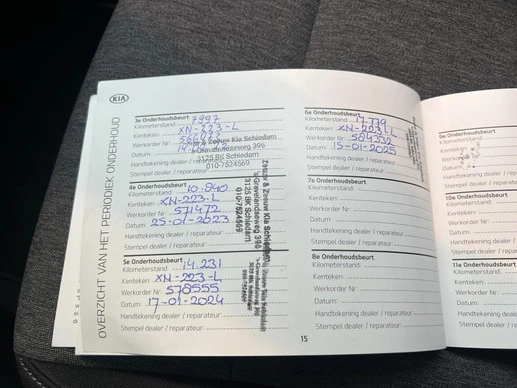 KIA
OVERZICHT VAN HET PERIODIEK ONDERHOUD
3e Onderhoudsbeurt
Kilometerstand: 7997
Kenteken: XN-223-L
Werkorder Nr
Datum:
Handtekening dealer / reparateur
Stempel dealer / reparateur:
& Zeeuw Kia Schiedam
's-Gravelandseweg 396
3125 BK Schiedam
010-7524569
4e Onderhoudsbeurt
Kilometerstand: 10.840
Kenteken: XN-223-L
Werkorder Nr: 571472
Datum: 25-01-2023
Handtekening dealer / reparateur:
Stempel dealer / reparateur:
Zeeuw & Zeeuw Kia Schiedam
's-Gravelandseweg 396
3125 BK Schiedam
010-7524569
5e Onderhoudsbeurt
Kilometerstand: 14.231
Kenteken: XN-223-L
Werkorder Nr: 578555
Datum: 17-01-2024
Handtekening dealer / reparateur:
Stempel dealer / reparateur:
6e Onderhoudsbeurt
Kilometerstand: 17.779
Kenteken: XN-223-L
Werkorder Nr: 584532
Datum: 15-01-2025
Handtekening dealer / reparateur
Stempel dealer / reparateur:
7e Onderhoudsbeurt
Kilometerstand:
Kenteken:
Werkorder Nr:
Datum:
Handtekening dealer / reparateur:
Stempel dealer / reparateur:
8e Onderhoudsbeurt
Kilometerstand:
Kenteken:
Werkorder Nr:
Datum:
Handtekening dealer / reparateur:
Stempel dealer / reparateur:
15
9e Onderhoudsbeurt
Kilometerstand
Kenteken:
Werkorder
Datum:
Handtekening dealer
Stempel dealer / rep
10e Onderhoudsbeurt
Kilometerstand:
Kenteken:
Werkorder Nr:
Datum:
Handtekening dealer
Stempel dealer / rep
11e Onderhoudsbeurt
Kilometerstand:
Kenteken:
Werkorder Nr:
Datum:
Handtekening dealer
Stempel dealer / rep